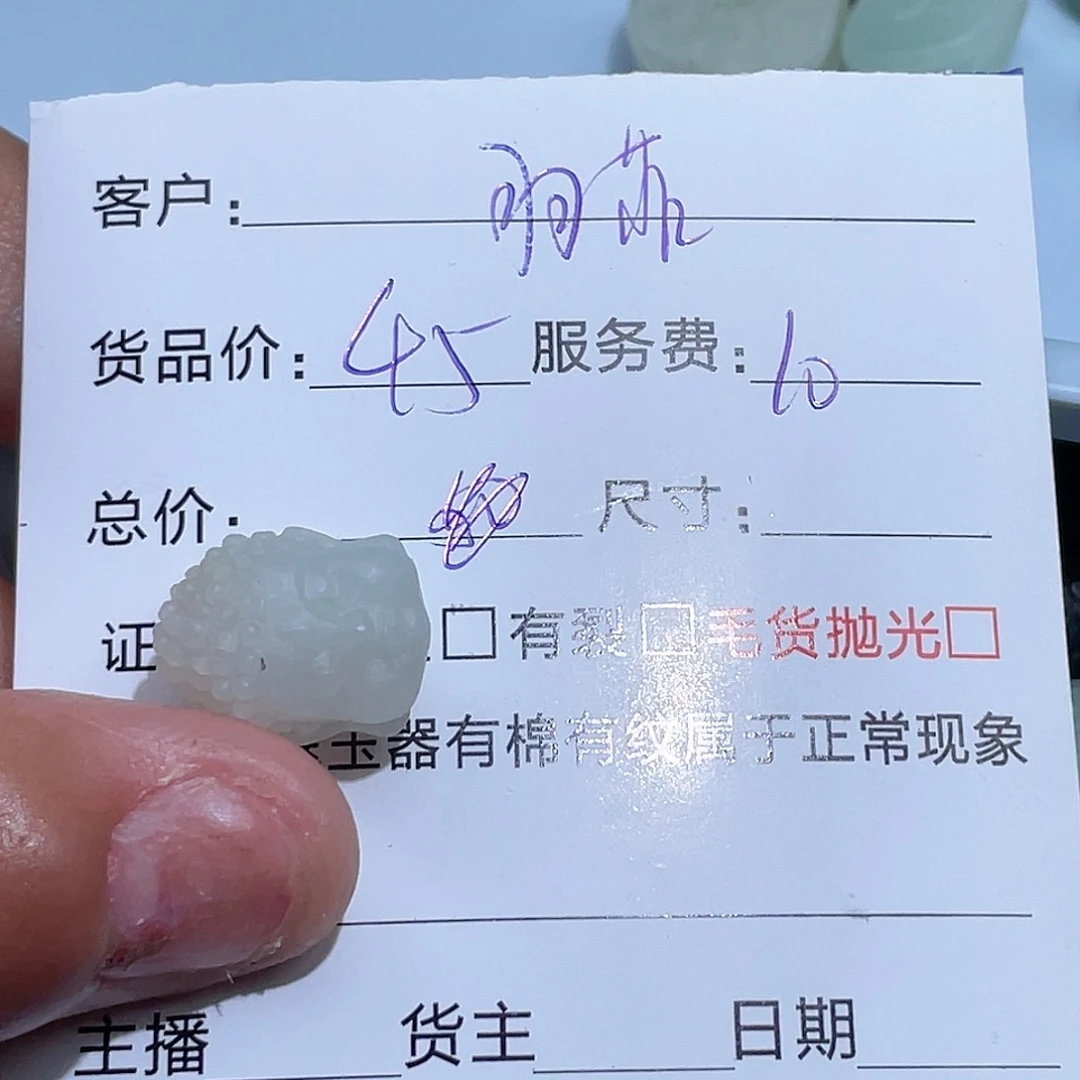 客户：羽菲
货品价：45 服务费：10
总价： 尺寸：
证 □有裂□毛货抛光□
玉器有棉有纹属于正常现象
主播 货主 日期